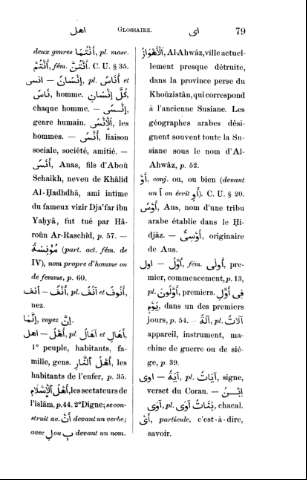 اهل GLOSSAIRE. اى 79
deux genres أَنْتُمَا, pl. masc.
أَنْتُمْ, fém. أَنْتُنَّ. C. U. § 35.
— إِنْسَانٌ, pl. أُنَاسٌ et — انسى
نَاسٌ, homme. كُلُّ إِنْسَانٍ,
chaque homme. — إِنْسٌ,
genre humain. الْإِنْسُ, les
hommes. — أُنْسٌ, liaison
sociale, société, amitié. —
أَنَسٌ, Anas, fils d'Aboû
Schaikh, neveu de Khâlid
Al-Ḥadhdhâ, ami intime
du fameux vizir Dja'far ibn
Yaḥyâ, fut tué par Hâ-
roûn Ar-Raschîd, p. 57. —
مُؤْنِسَةٌ (part. act. fém. de
IV), nom propre d'homme ou
de femme, p. 60.
أَنْفٌ — أنف, pl. آنُفٌ et أُنُوفٌ,
nez.
إِنَّمَا, voyez إِنَّ.
أَهْلٌ — اهل, pl. أَهَالٍ et أَهَالِ,
1° peuple, habitants, fa-
mille, gens. أَهْلُ النَّارِ, les
habitants de l'enfer, p. 35.
أَهْلُ الْإِسْلَامِ, les sectateurs de
l'islâm, p. 44. 2° Digne; se con-
struit avec أَنْ devant un verbe;
avec لِ ou بِ devant un nom.
الْأَهْوَازُ, Al-Ahwâz, ville actuel-
lement presque détruite,
dans la province perse du
Khoûzistân, qui correspond
à l'ancienne Susiane. Les
géographes arabes dési-
gnent souvent toute la Su-
siane sous le nom d'Al-
Ahwâz, p. 52.
أَوْ, conj. ou, ou bien (devant
un ا on écrit أَوِ). C. U. § 20.
أَوْسٌ, Aus, nom d'une tribu
arabe établie dans le Ḥi-
djâz. — أَوْسِىٌّ, originaire
de Aus.
أَوَّلُ — اول, fém. أُولَى, pre-
mier, commencement, p. 13,
pl. أَوَّلُونَ, premiers. فِى أَوَّلِ
يَوْمٍ, dans un des premiers
jours, p. 54. — آلَةٌ, pl. آلَاتٌ,
appareil, instrument, ma-
chine de guerre ou de siè-
ge, p. 39.
آيَةٌ — اوى, pl. آيَاتٌ, signe,
verset du Coran. — إِبْنُ
آوَى, pl. بَنَاتُ آوَى, chacal.
أَىْ, particule, c'est-à-dire,
savoir.